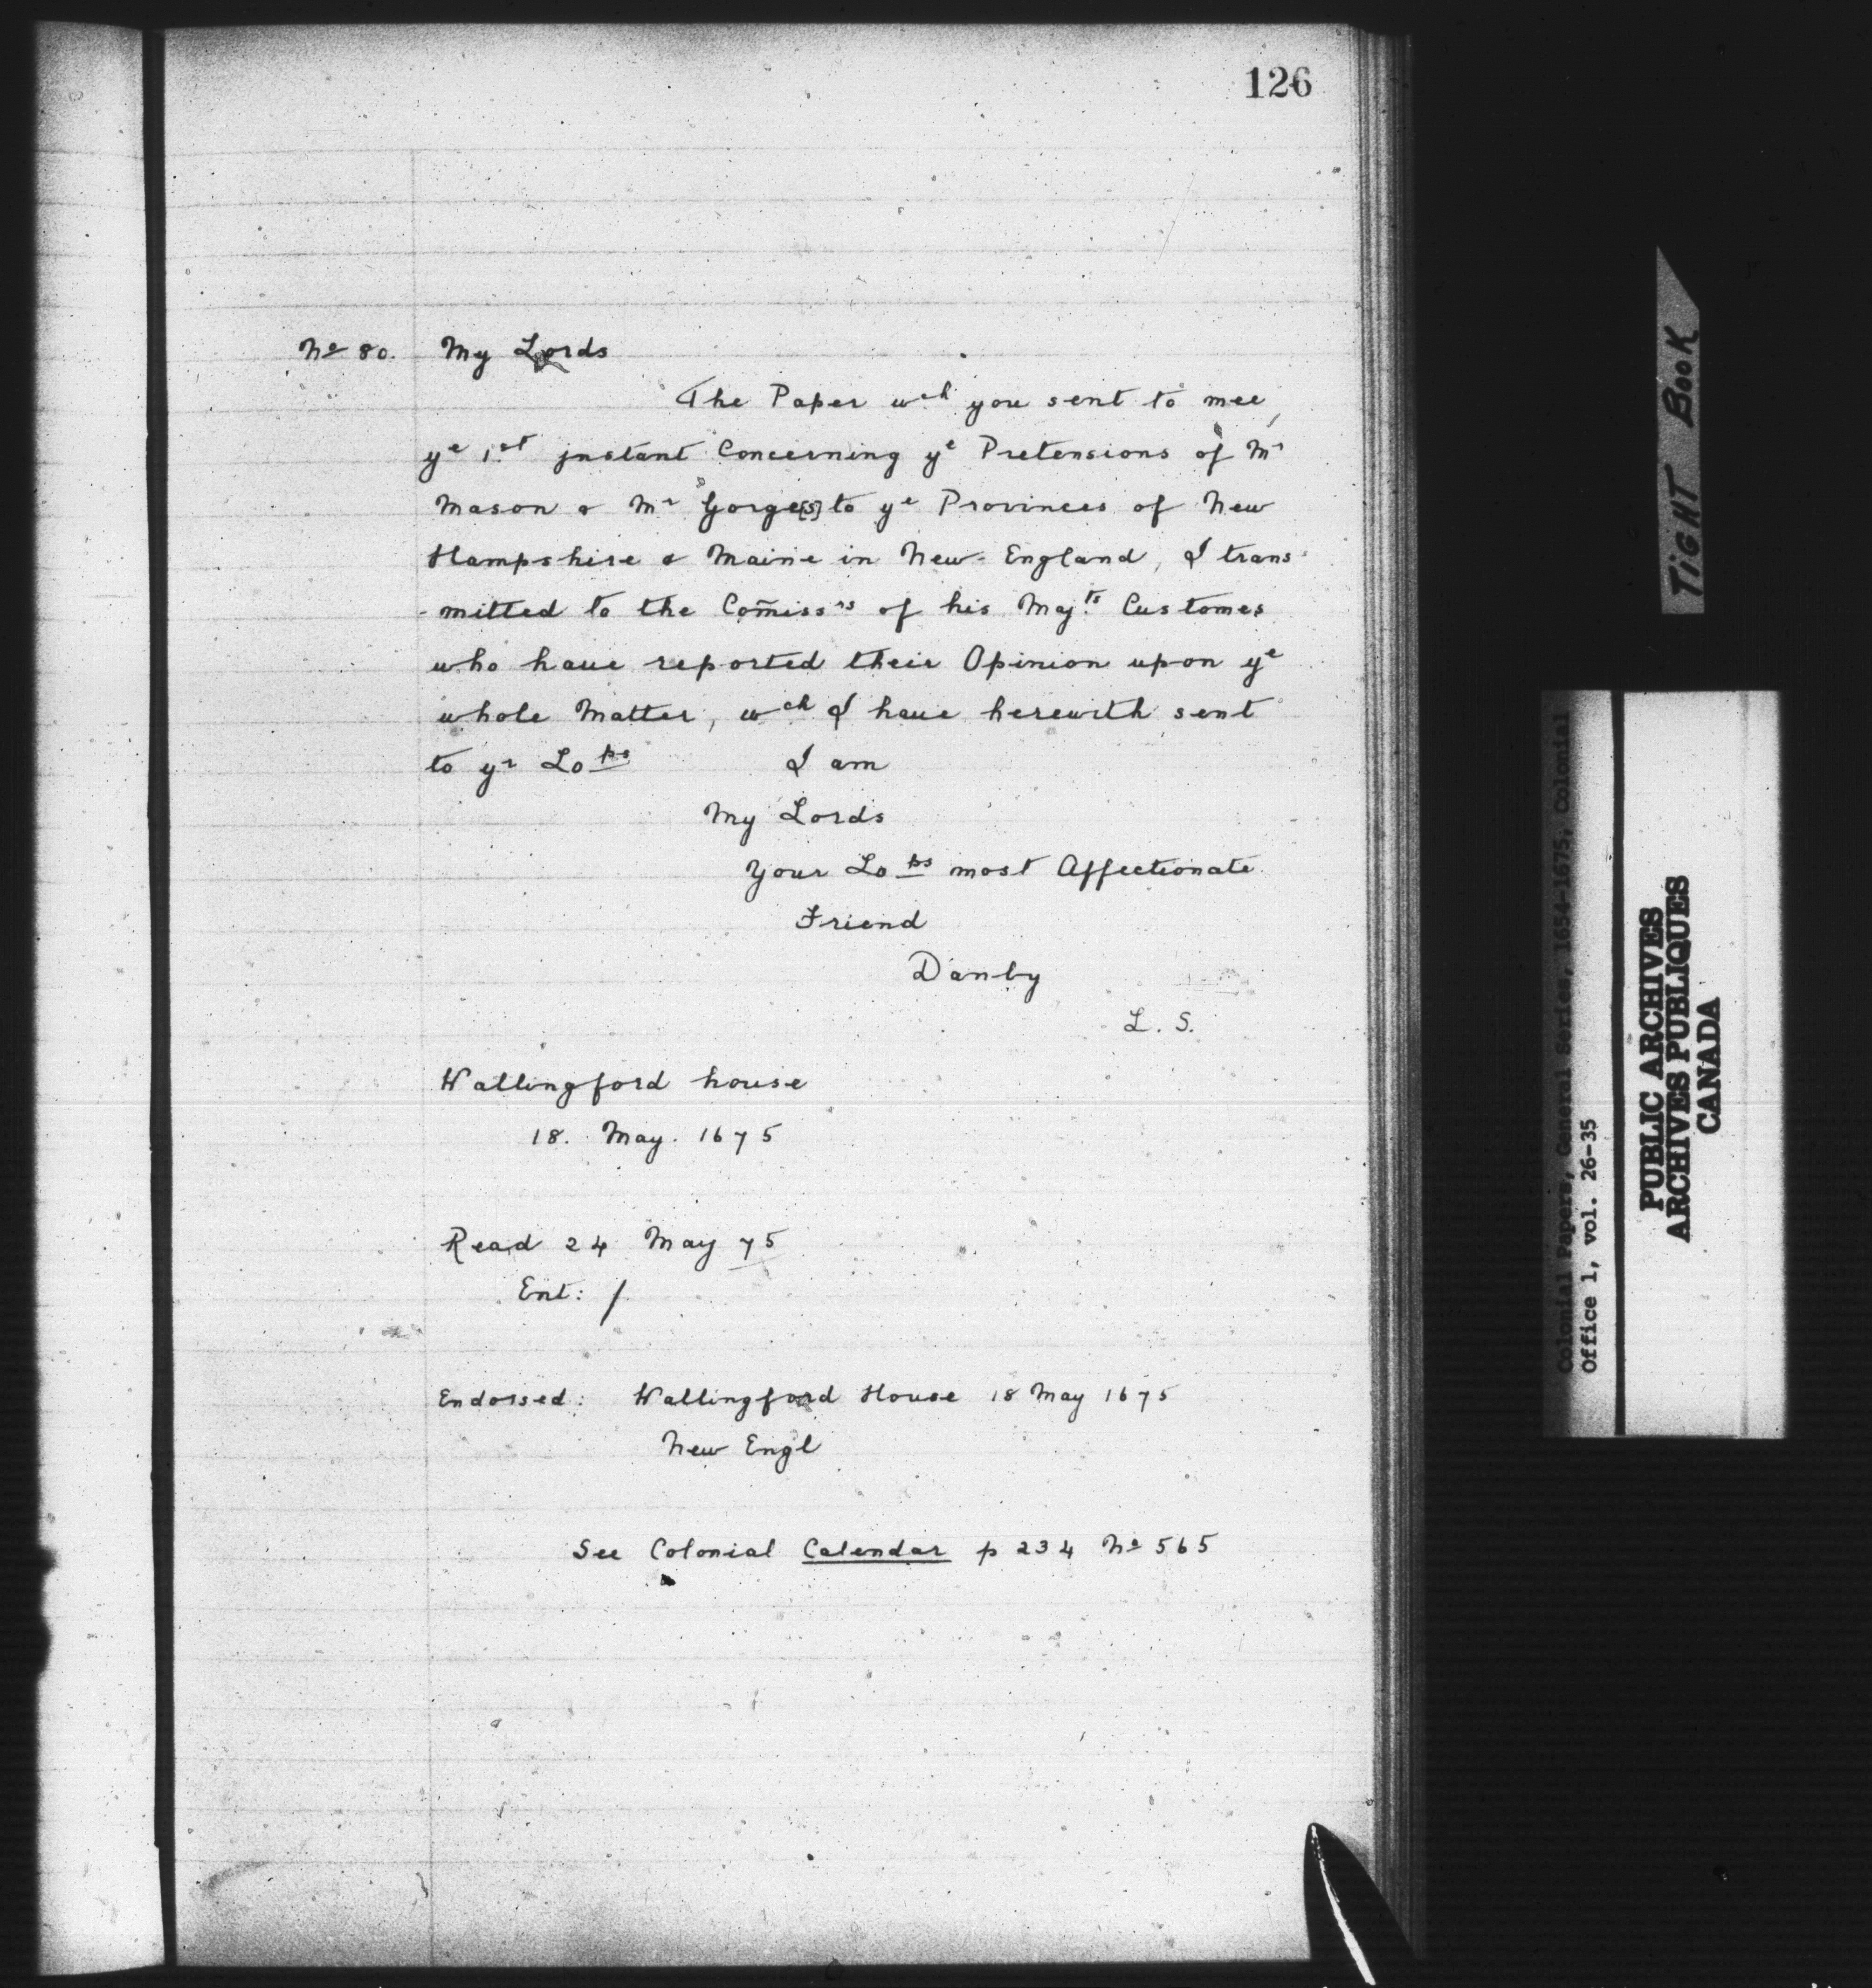 126
No 80. My Lords
The Paper wch you sent to mee,
ye 1st jnstant Concerning ye Pretensions of Mr
Mason & Mr Gorge[s] to ye Provinces of New
Hampshire & Maine in New-England, I trans-
-mitted to the Com̃issrs of his Majts Customes
who haue reported their Opinion upon ye
whole Matter, wch I haue herewith sent
to yr Lops I am
My Lords
Your Lops most Affectionate
Friend
Danby
L. S.
Wallingford house
18. May. 1675
Read 24 May 75
Ent: /.
Endorsed: Wallingford House 18 May 1675
New Engl
See Colonial Calendar p 234 No 565
TIGHT BOOK
Colonial Papers, General Series, 1654-1675, Colonial
Office 1, vol. 26-35
PUBLIC ARCHIVES
ARCHIVES PUBLIQUES
CANADA